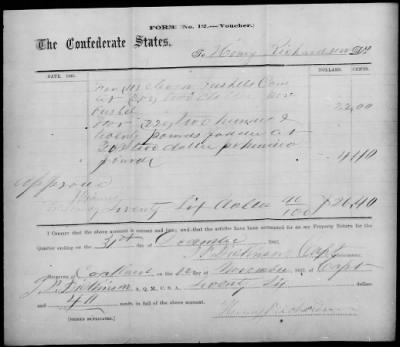 FORM No. 12.—Voucher.
The Confederate States,
To Henry Richardson Dr.
DATE. 186 . DOLLARS. CENTS.
For 11 eleven bushels Corn
at two dollars per
bushel 22.00
For 220 two hundred &
twenty pounds fodder at
two dollars per hundred
pounds 4.40
approved
Twenty Six dollars 40/100 $26.40
I CERTIFY that the above account is correct and just; and that the articles have been accounted for on my Property Return for the
Quarter ending on the 31st day of December 186 .
Capt
RECEIVED at on the of November 186 , of Capt
A. Q. M., C. S. A., Twenty Six dollars
and 40 cents, in full of the above account.
Henry Richardson
[SIGNED DUPLICATES.]